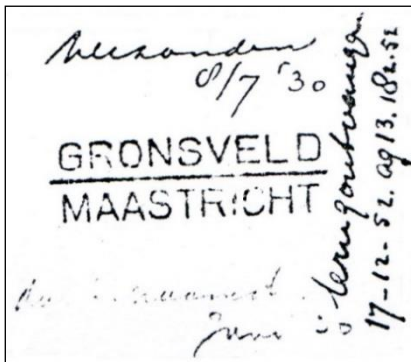 Verzonden
8/7 '30
GRONSVELD
MAASTRICHT
Juni '30
terugontvangen
17-12-52. ag 13.182.52